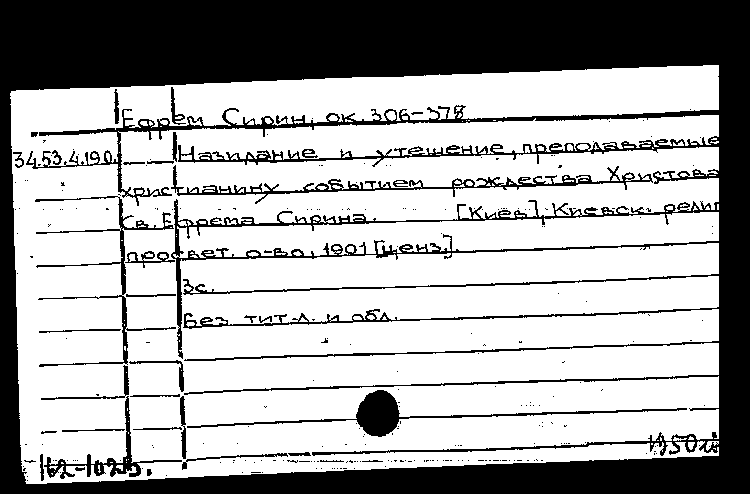 Ефрем Сирин, ок. 306-378
34.53.4.190. Назидание и утешение, преподаваемые
христианину событием рождества Христова
Св. Ефрема Сирина. [Киев], Киевск. религ
просвет. о-во, 1901 [ценз.].
3с.
Без тит. л. и обл.
162-102б.